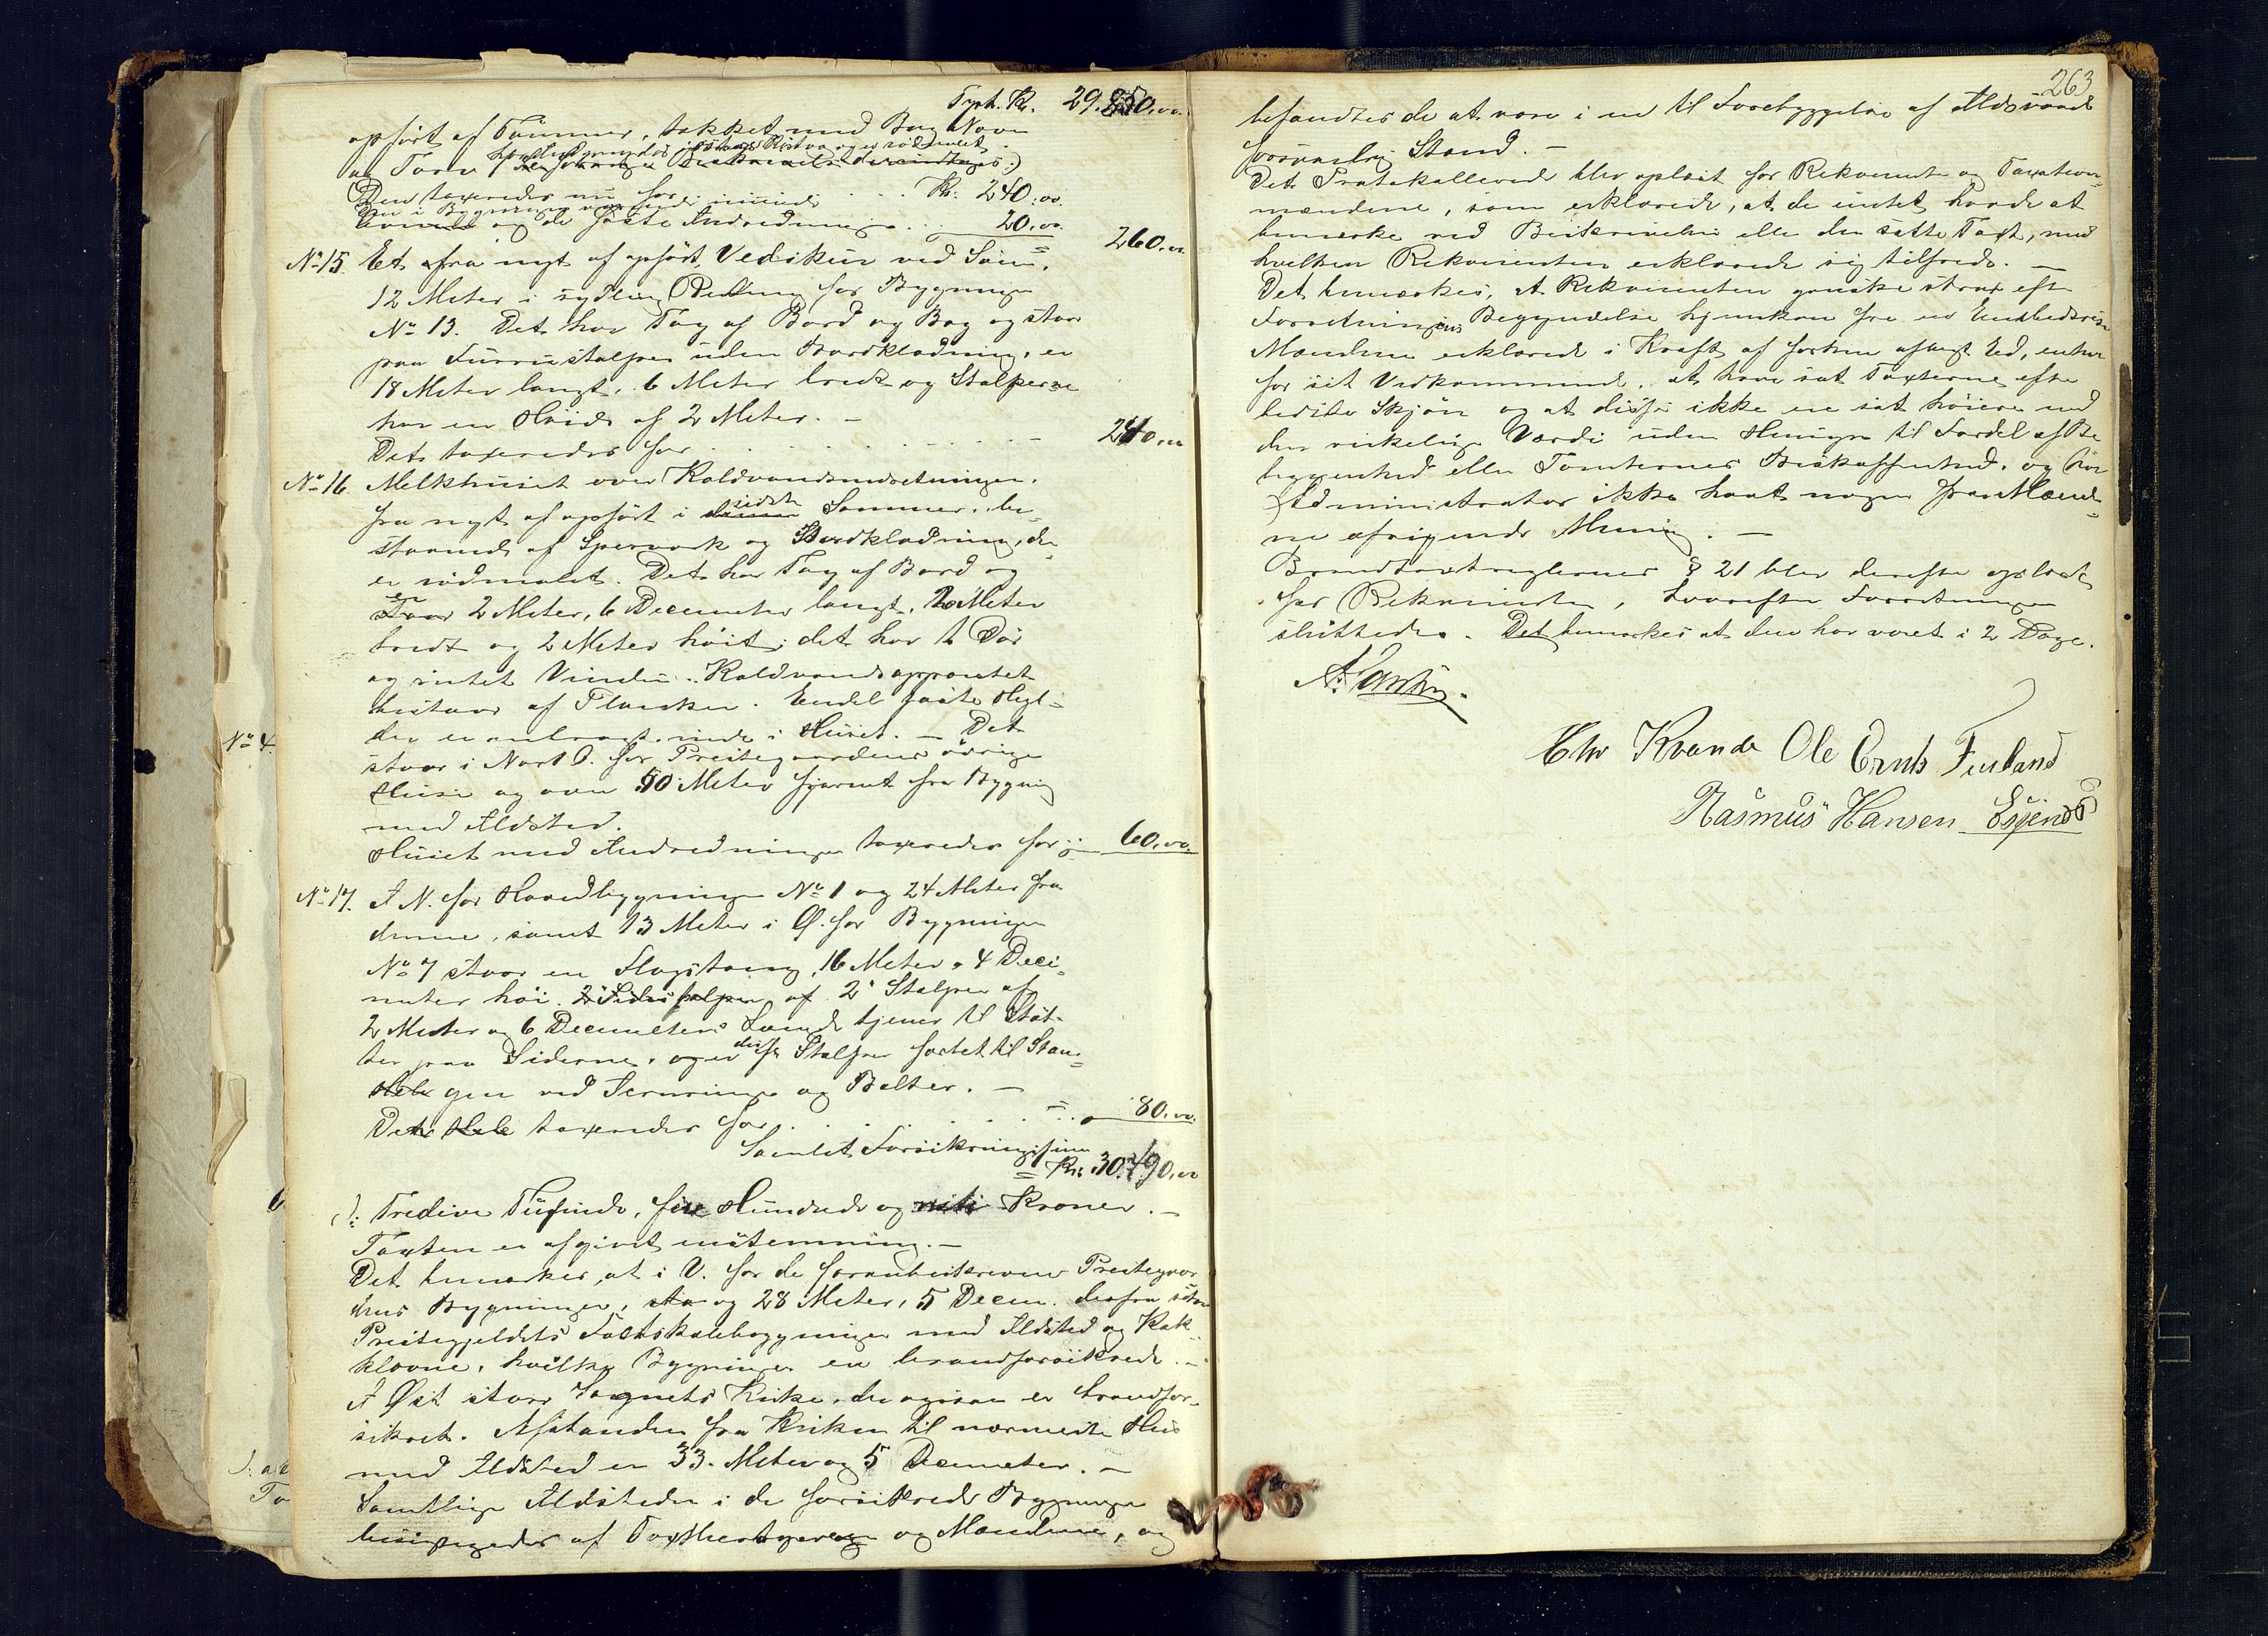 Tpt. Kr. 29.850.00.
opført af Tømmer, tækket med Bay Næver
og Torv
Den taxeredes nu for Kr. 240.00.
og de faste Indredninger 20.00.
260.00
No 15. Et fra nyt af opført Vedskur ved Søen,
12 Meter i sydlig Retning for Bygningen
No 13. Det har Tag af Bord og staar
paa Furrustolper uden Bordklædning, er
18 Meter langt, 6 Meter bredt og Stolperne
har en Høide af 2 Meter. –
Det taxeredes for . . . . . . . . 240.00
No 16. Melkhuset over Koldvandsindretningen,
fra nyt af opført i sidste Sommer, be-
staaende af Sperværk og Bordklædning, der
er rødmalet. Det har Tag af Bord og
er 2 Meter, 6 Decimeter langt, 2 Meter
bredt og 2 Meter høit; det har 1 Dør
og intet Vindu. Koldvandsapparatet
bestaar af Planker. Endel faste Hyl-
der er anbragt inde i Huset. – Det
staar i Nord O. for Præstegaardens øvrige
Huse og over 50 Meter fjernet fra Bygning
med Ildsted.
Huset med Indredninger taxeredes for 60.00.
No 17. I N. for Hovedbygningen No 1 og 24 Meter fra
denne, samt 13 Meter i Ø. for Bygningen
No 7 staar en Flagstang, 16 Meter, 4 Deci-
meter høi. 2 Stolper af
2 Meter og 6 Decimeters Længde tjener til Støt-
ter paa Siderne, og er disse Stolper fæstet til Stan-
gen ved Jernringe og Bolter. –
Det Hele taxeredes for . . . . . 80.00.
Samlet Forsikringssum
= Kr. 30.490.00
ɔ: Tredive Tusinde, fire Hundrede og niti Kroner. –
Taxten er afgivet enstemmig. –
Det bemærkes, at i V. for de foranbeskrevne Præstegaar-
dens Bygninger, og 28 Meter, 5 Decim. derfra staar
Præstegjeldets Folkskolebygninger med Ildsted og Kak-
kelovne, hvilke Bygninger er brandforsikrede. –
I Øst staar Sognets Kirke, der ogsaa er brandfor-
sikret. Afstanden fra Kirken til nærmeste Hus
med Ildsted er 33 Meter og 5 Decimeter. –
Samtlige Ildsteder i de forsikrede Bygninger
besigtigedes af Taxtbestyreren og Mændene, og
263
befandtes de at være i en til Forebyggelse af Ildsvaade
forsvarlig Stand. –
Det Protokollerede blev oplæst for Rekvirenten og Taxations-
mændene, som erklærede, at de intet havde at
bemærke ved Beskrivelsen eller den satte Taxt, med
hvilken Rekvirenten erklærede sig tilfreds. –
Det bemærkes, at Rekvirenten ganske strax efter
Forretningens Begyndelse hjemkom fra en Embedsreise
Mændene erklærede i Kraft af forhen aflagt Ed, enhver
for sit Vedkommende, at have sat Taxterne efter
bedste Skjøn og at disse ikke ere sat høiere end
den virkelige Værdi uden Hensyn til Fordel af Be-
liggenhed eller Tomternes Beskaffenhed, og har
Administrator ikke havt nogen fra Mænde-
ne afvigende Mening. –
Brandtaxtreglernes § 21 blev derefter oplæst
for Rekvirenten, hvorefter Forretningen
sluttedes. Det bemærkes at den har varet i 2 Dage.
Chr Kvande Ole Ernts Finland
Rasmus Hansen